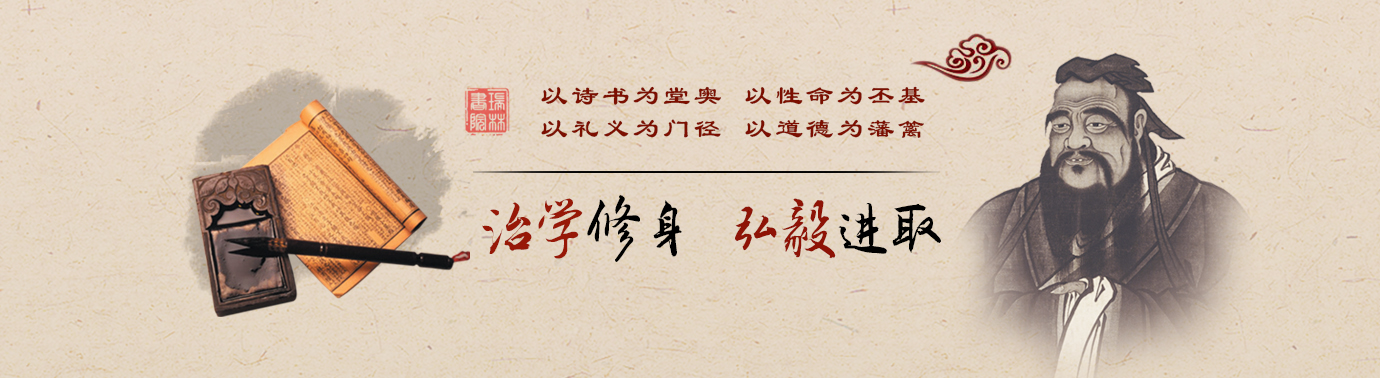 以诗书为堂奥 以性命为丕基
以礼义为门径 以道德为藩篱
治学修身 弘毅进取